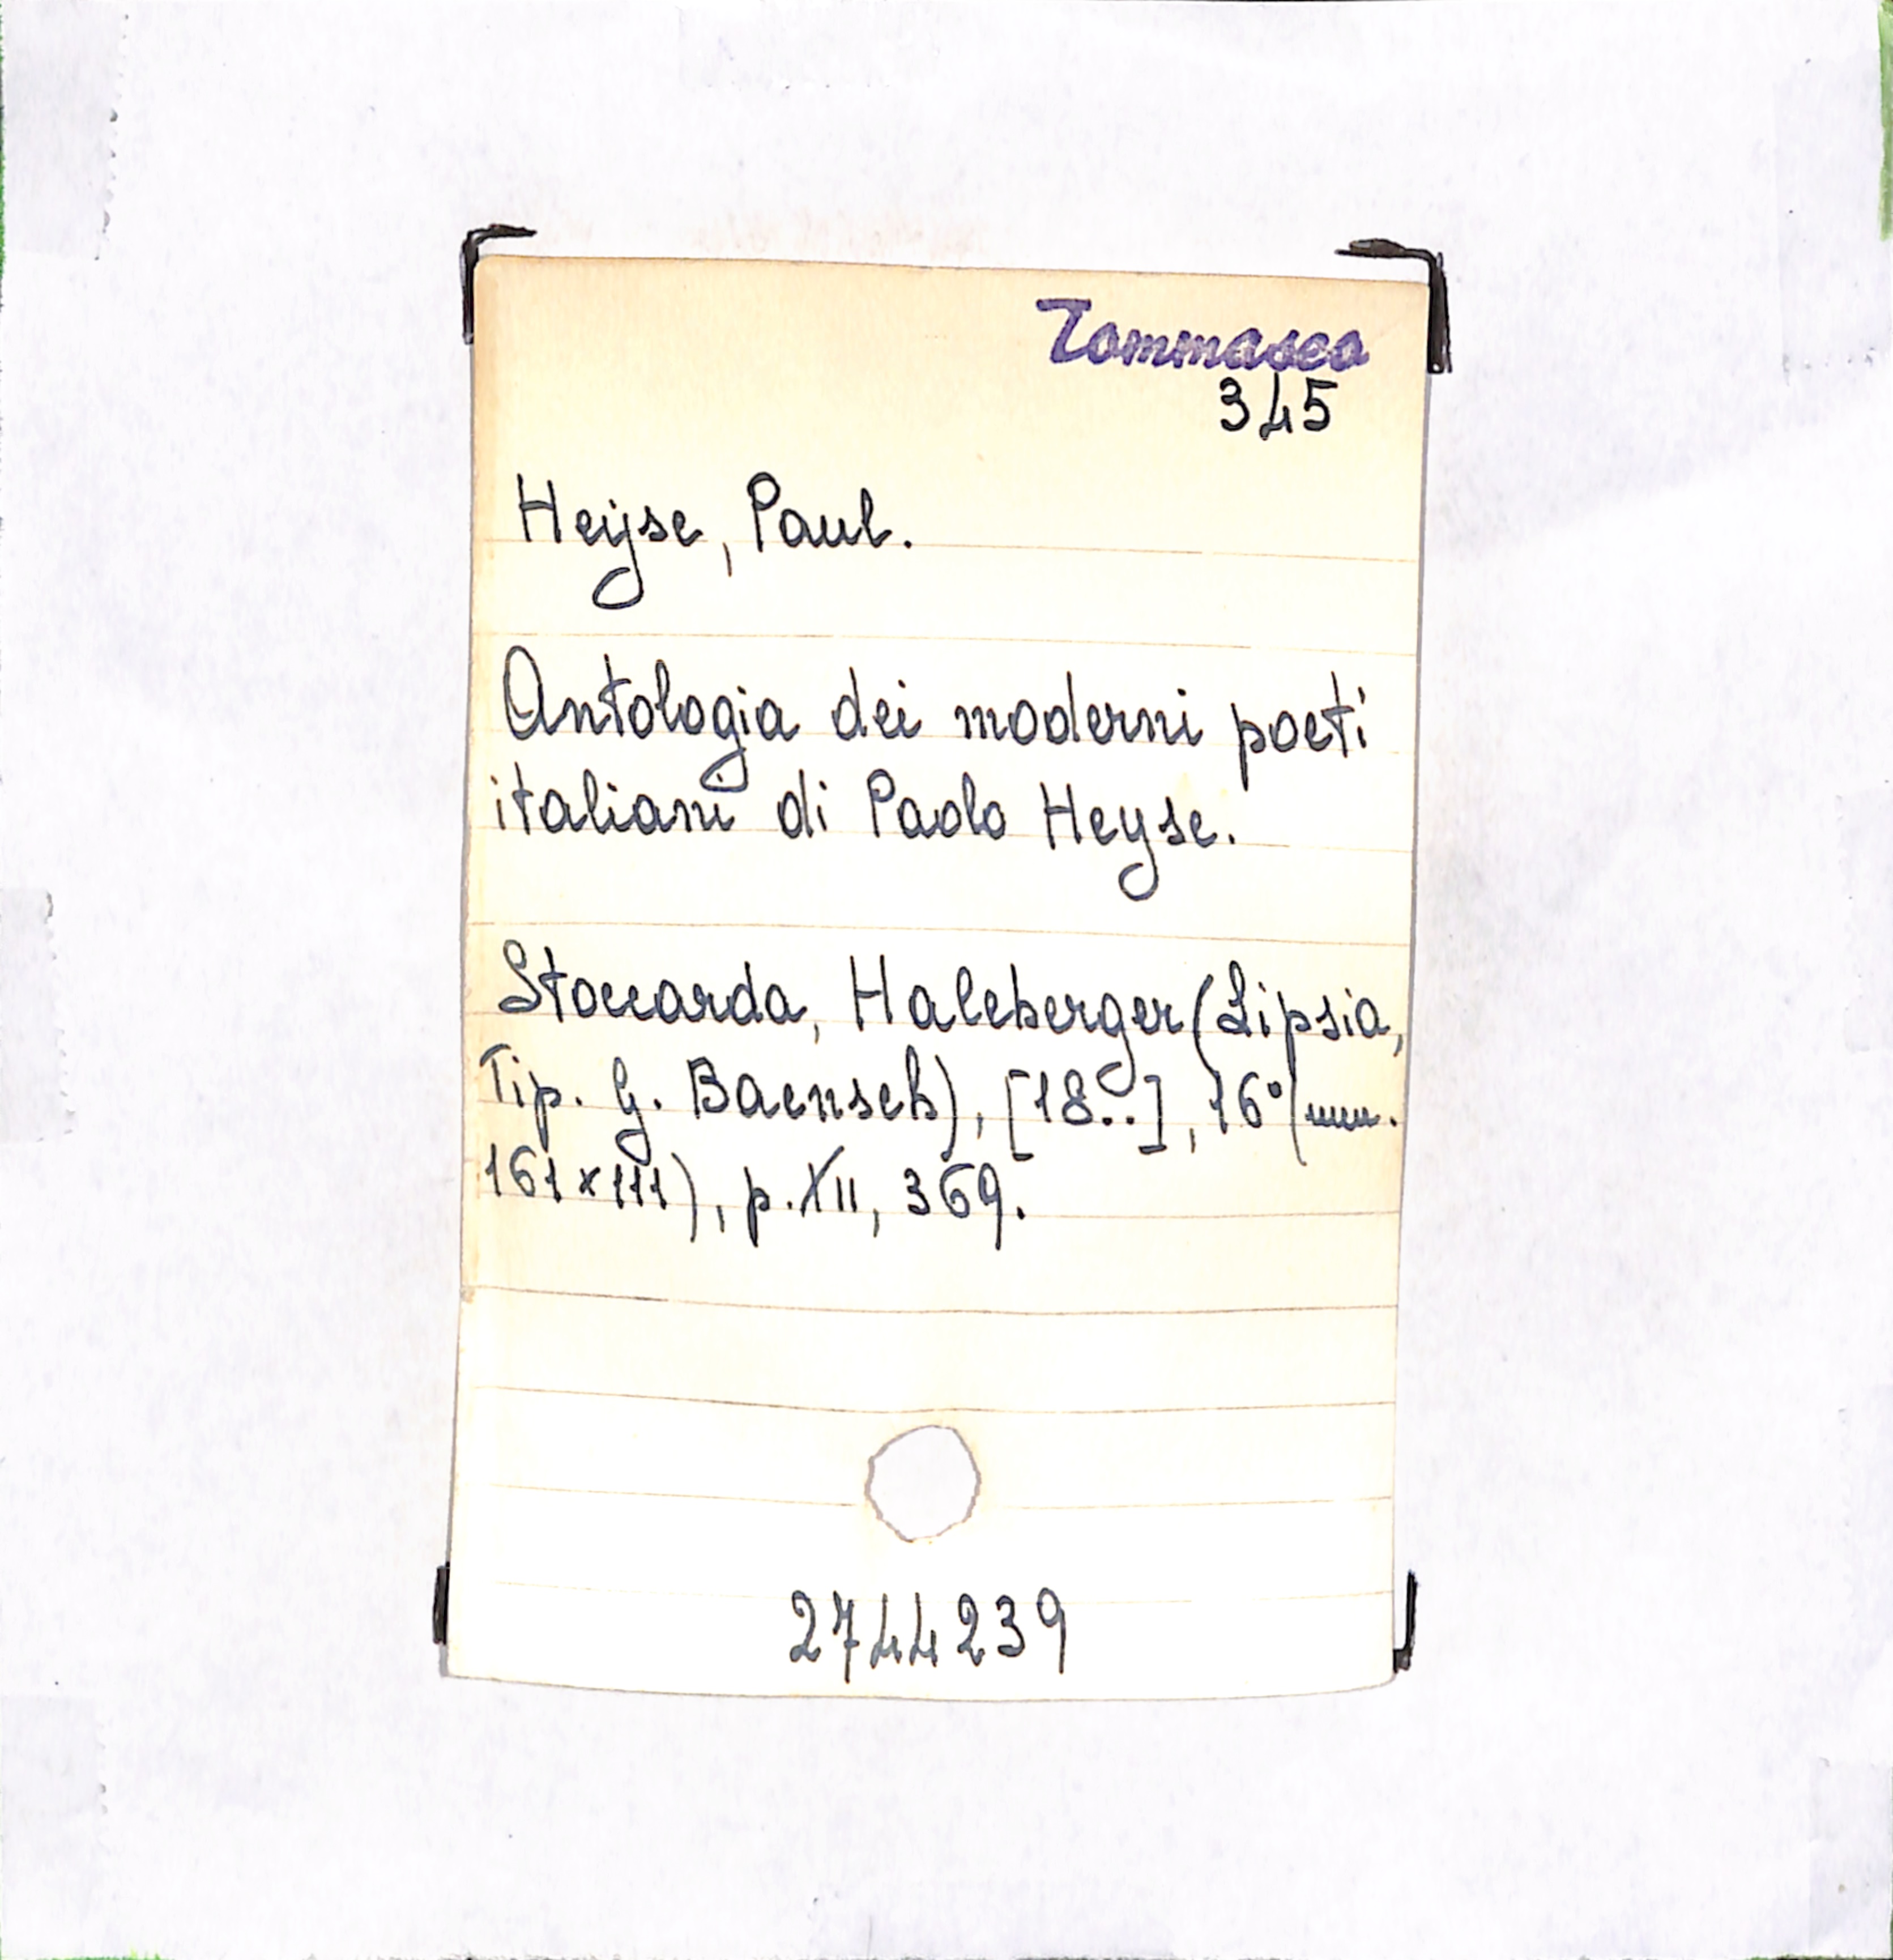 Tommaseo
345
Heyse, Paul.
Antologia dei moderni poeti
italiani di Paolo Heyse.
Stoccarda, Halcberger (Lipsia,
Tip. G. Baensch), [18..], 16° (mm.
161x111), p. XII, 369.
2744239